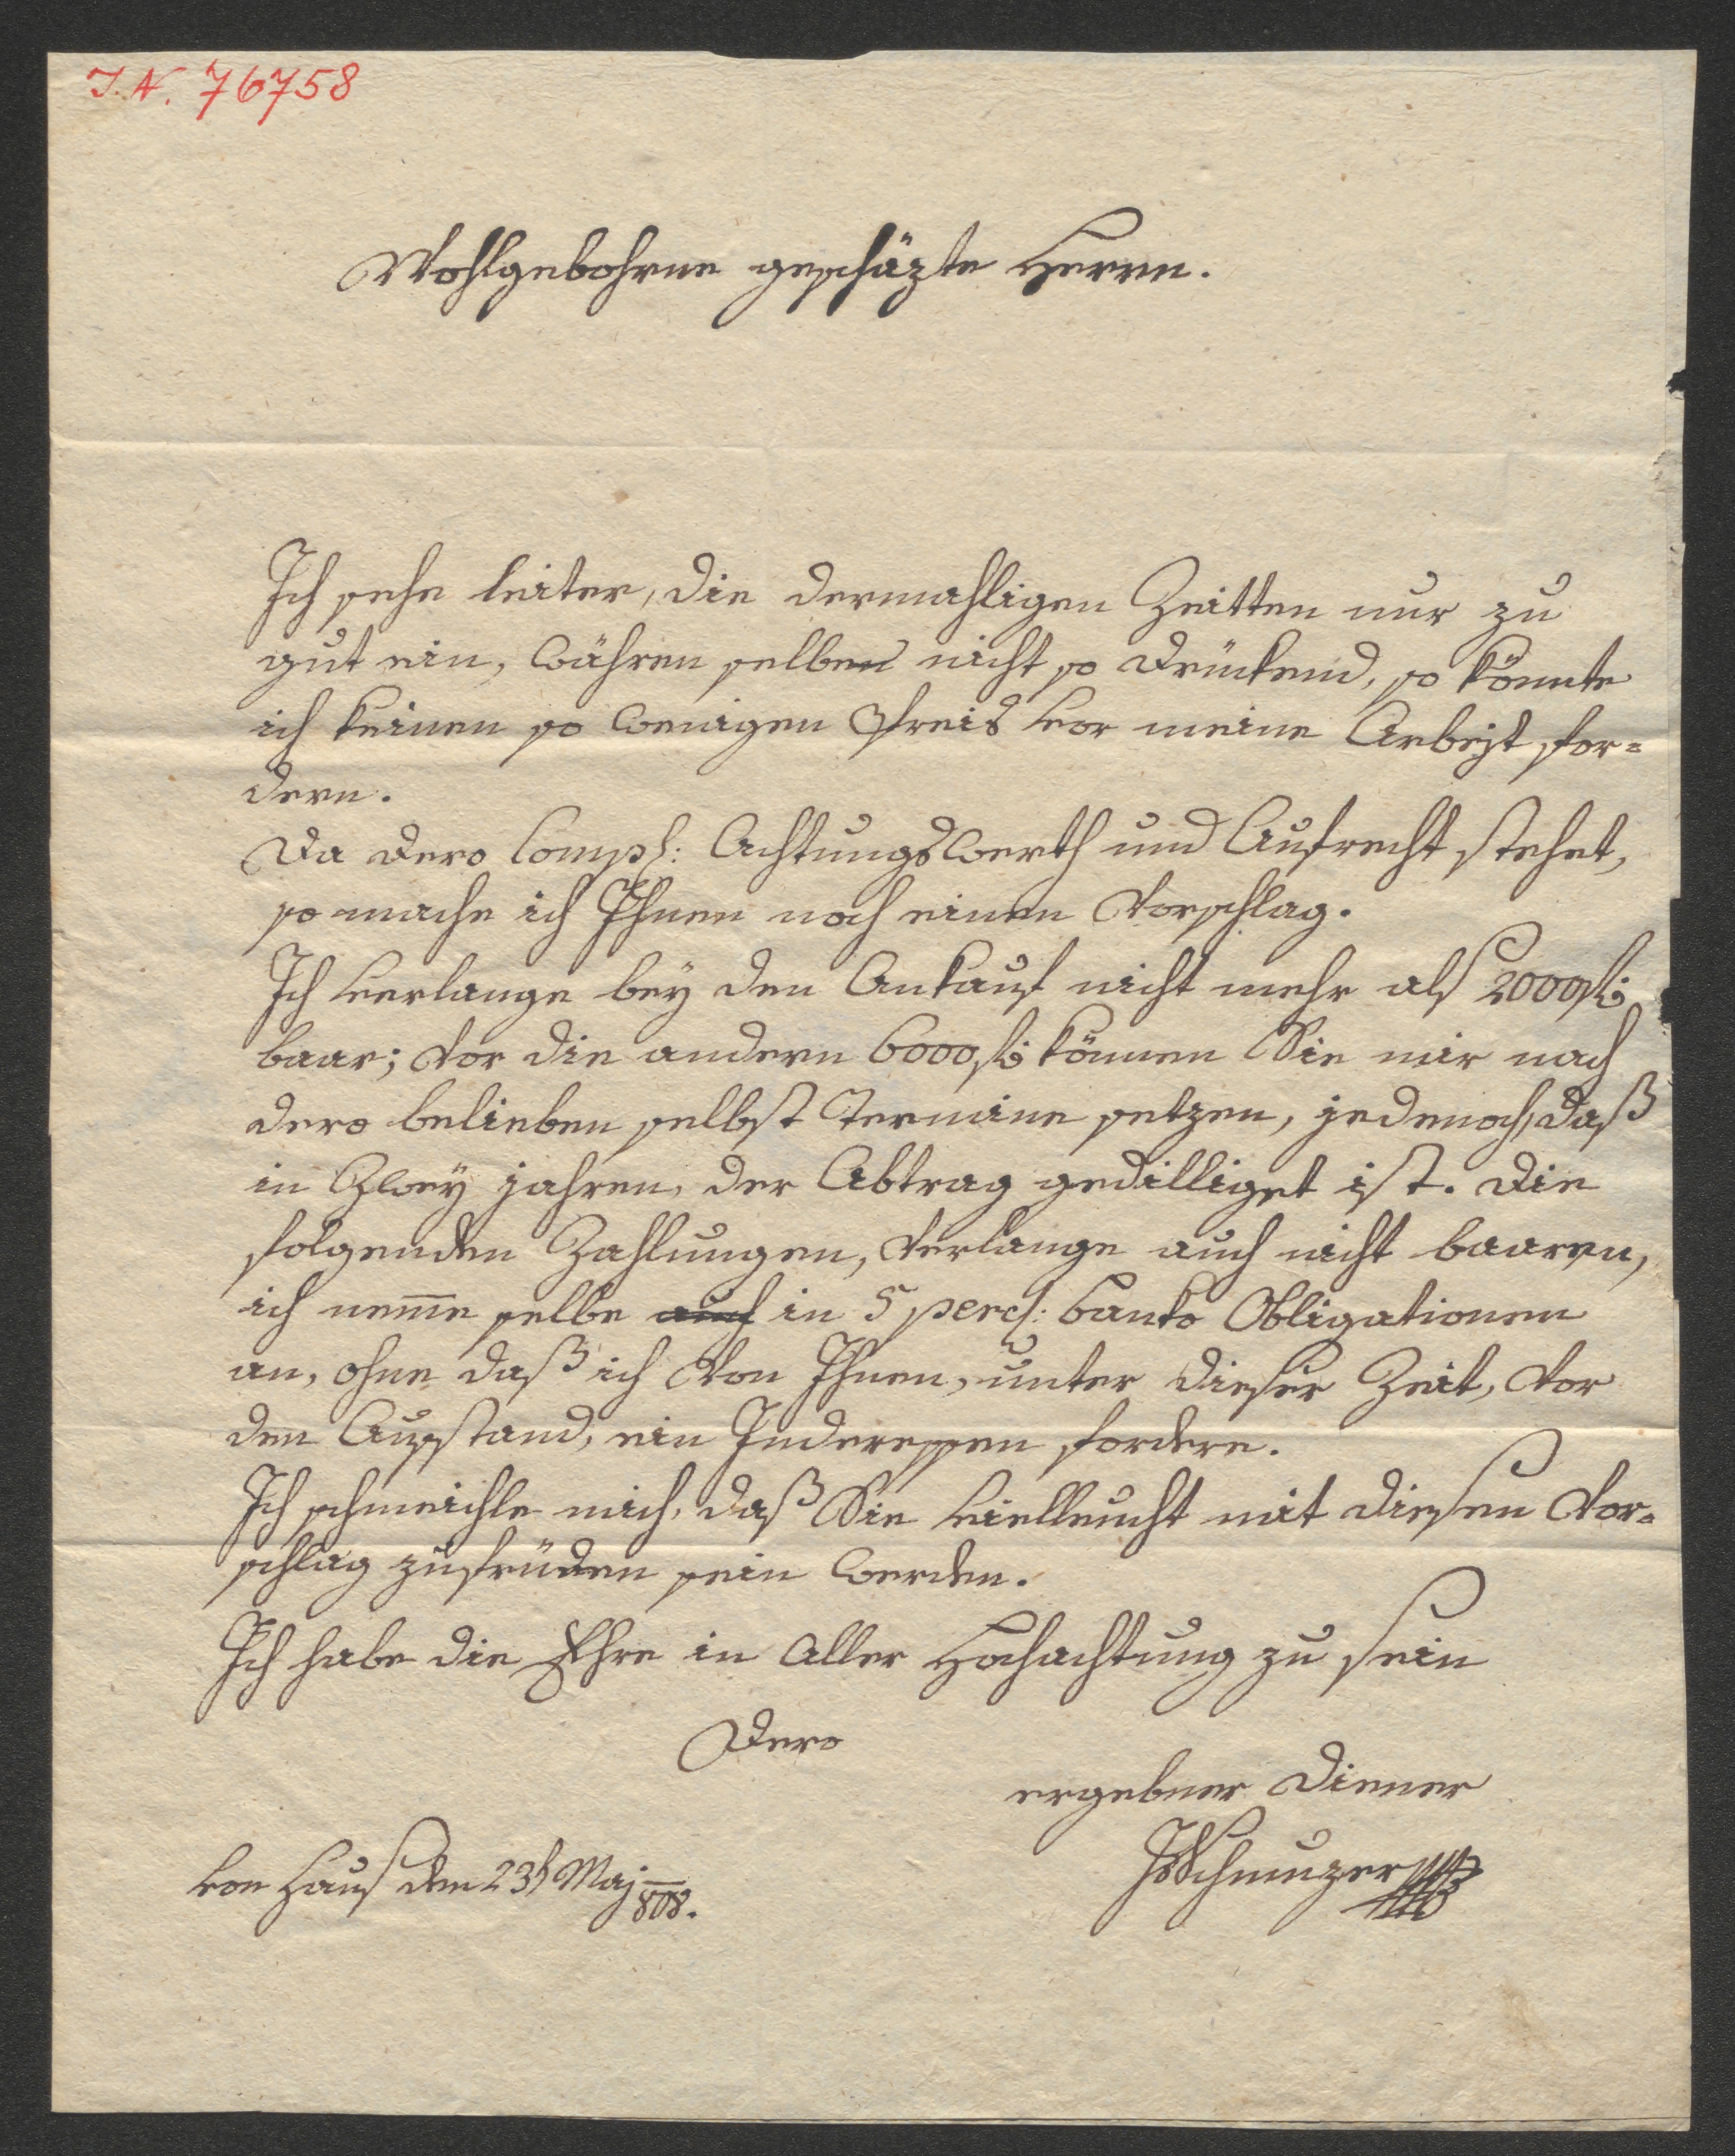 I. N. 76758
Wohlgebohrne geschäzte Herrn.
Ich sehe leiter, die dermahligen Zeitten nur zu
gut ein, währen selben nicht so drückend, so könnte
ich keinen so wenigen Preis vor meine Arbeit for=
dern.
Da dero Comp: Achtungswerth und Aufrecht stehet,
so mache ich Ihnen noch einen Vorschlag.
Ich verlange bey den Ankauf nicht mehr als 2000 fl:
baar; vor die andern 6000 fl: können Sie mir nach
dero belieben selbst Termine setzen, jedennoch, daß
in Zwey jahren, der Abtrag gedilliget ist. Die
folgenden Zahlungen, verlange auch nicht baaren,
ich nem̄e selbe auch in 5 perc: banko Obligationen
an, ohne daß ich von Ihnen, unter dieser Zeit, vor
den Ausstand, ein Inderessen fordere.
Ich schmeichle mich, daß Sie vielleucht mit diesen Vor=
schlag zufrüden sein werden.
Ich habe die Ehre in Aller Hochachtung zu sein
Dero
ergebner Diener
JSchmuzer
von Haus den 23t Maj 808.